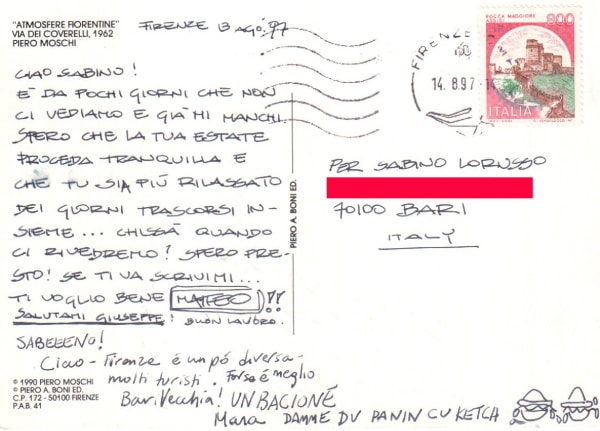 "ATMOSFERE FIORENTINE"
VIA DEI COVERELLI, 1962
PIERO MOSCHI
FIRENZE 13 AGO. '97
CIAO SABINO!
È DA POCHI GIORNI CHE NON
CI VEDIAMO E GIÀ MI MANCHI.
SPERO CHE LA TUA ESTATE
PROCEDA TRANQUILLA E
CHE TU SIA PIÙ RILASSATO
DEI GIORNI TRASCORSI IN-
SIEME... CHISSÀ QUANDO
CI RIVEDREMO? SPERO PRE-
STO! SE TI VA SCRIVIMI...
TI VOGLIO BENE MATTEO!!
SALUTAMI GIUSEPPE! BUON LAVORO.
SABEEENO!
Ciao - Firenze é un pó diversa -
molti turisti. Forse é meglio
Bari Vecchia! UN BACIONE
Mara DAMME DU PANIN CU KETCH
© 1990 PIERO MOSCHI
© PIERO A. BONI ED.
C.P. 172 - 50100 FIRENZE
P.A.B. 41
PIERO A. BONI ED.
FIRENZE
14.8.97
ROCCA MAGGIORE
800
ITALIA
PER SABINO LORUSSO
70100 BARI
ITALY